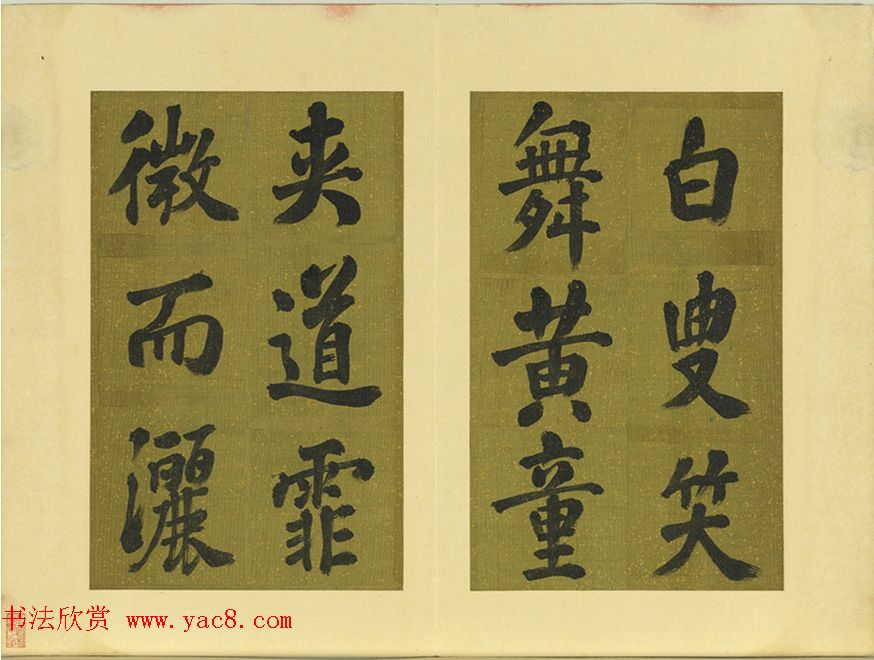 白叟笑
舞黄童
夹道霏
微而灑
书法欣赏 www.yac8.com